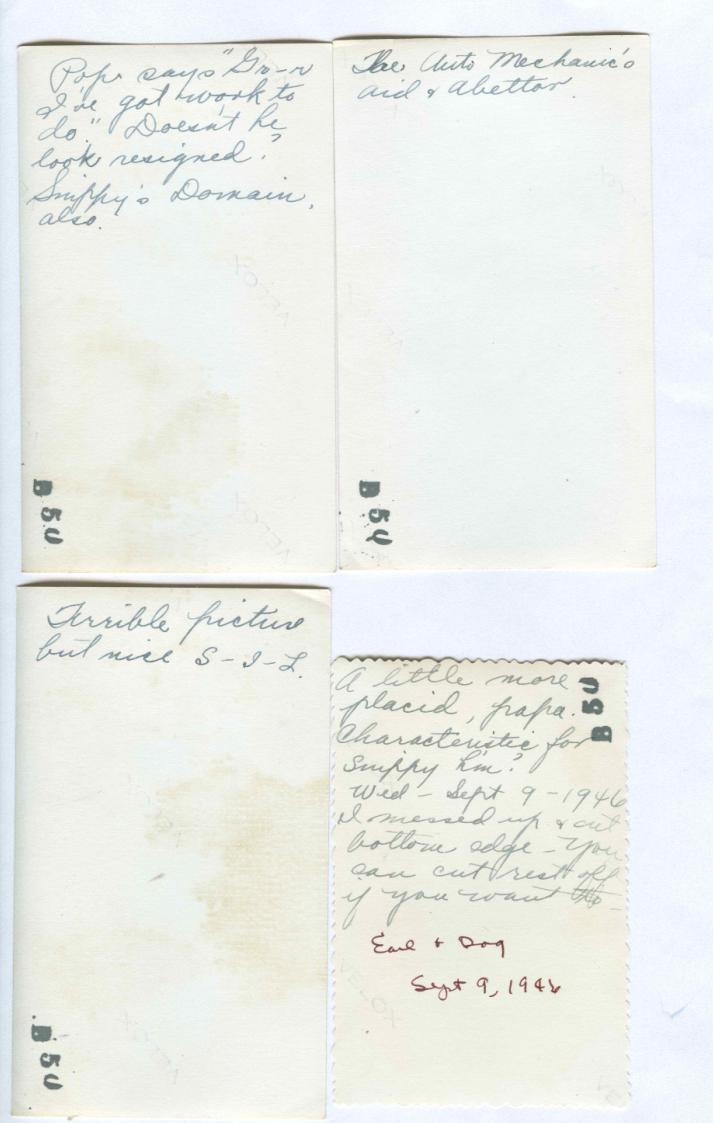 Pop says "Gr-r
I've got work to
do." Doesn't he
look resigned?
Snippy's Domain,
also.
VELOX
VELOX
B 5U
The Auto Mechanic's
aid & abettor.
B 5U
Terrible picture
but nice S-I-L.
B 5U
A little more
placid, papa.
Characteristic for
Snippy h'm?
Wed - Sept 9 - 1946
I messed up & cut
bottom edge - You
can cut rest off
if you want to -
B 5U
Earl & Dog
Sept 9, 1946
VELOX